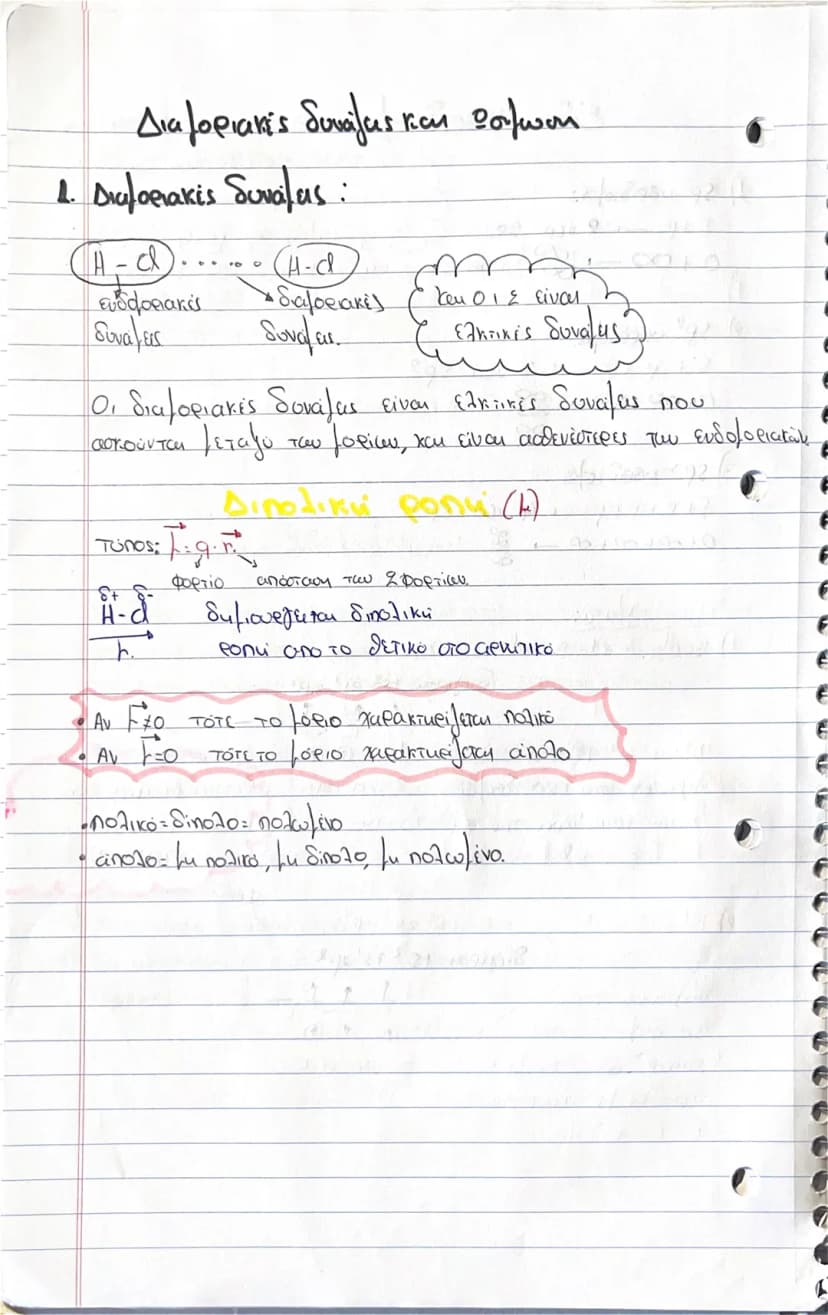 Διαμοριακές δυνάμεις και ώσμωση
1. Διαμοριακές δυνάμεις:
H-Cl ....... H-Cl
ενδομοριακές δυνάμεις
διαμοριακές δυνάμεις.
και οι 2 είναι
ελκτικές δυνάμεις
Οι διαμοριακές δυνάμεις είναι ελκτικές δυνάμεις που
ασκούνται μεταξύ των μορίων, και είναι ασθενέστερες των ενδομοριακών
Διπολική ροπή (μ)
τύπος: μ = q · r.
φορτίο απόσταση των 2 φορτίων.
δ+ δ-
H-Cl δημιουργείται διπολική
μ. ροπή απο το θετικό στο αρνητικό
• Αν μ≠0 τότε το μόριο χαρακτηρίζεται πολικό
• Αν μ=0 τότε το μόριο χαρακτηρίζεται άπολο
• πολικό = δίπολο = πολωμένο
• άπολο = μη πολικό, μη δίπολο, μη πολωμένο.